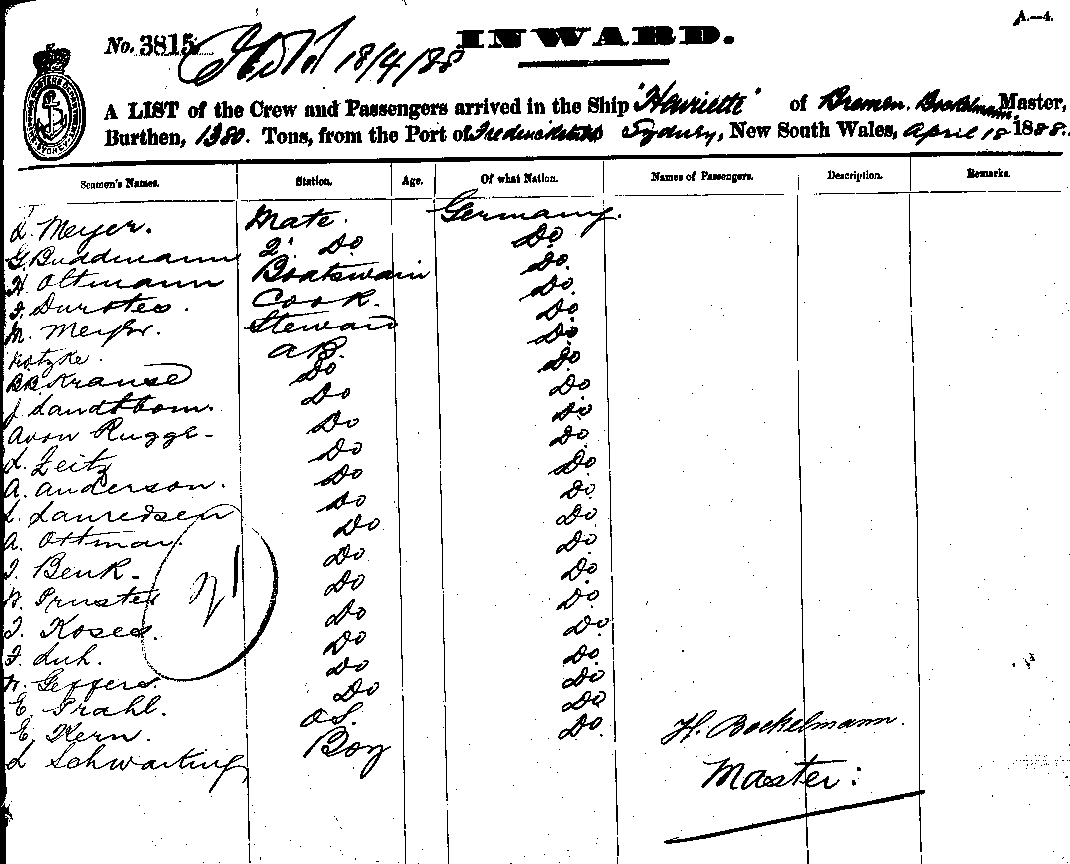 A.—4.
No. 3815 18/4/88 INWARD.
A LIST of the Crew and Passengers arrived in the Ship "Henriette" of Bremen. Bockelmann, Master,
Burthen, 1380. Tons, from the Port of Sydney, New South Wales, April 18 1888.
Seamen's Names. Station. Age. Of what Nation. Names of Passengers. Description. Remarks.
Meyer. Mate. Germany.
G. Buddmann 2. Do Do
H Oltmann Boatswain Do.
Cook. Do
M. Steward Do
Kotzke. AB. Do
Krause Do Do
J. Landtbom. Do Do
A von Rugge- Do Do
L. Zeitz Do Do
A. Anderson. Do Do
L. Lauredsen Do Do
A. Ottman. Do Do
Benk. Do Do
Do Do
Do Do
Luh. Do Do
Geffers. Do Do
E. Prahl. Do Do
E. Kern. O.S. Do
L Schwarting Boy
H. Bockelmann.
Master: